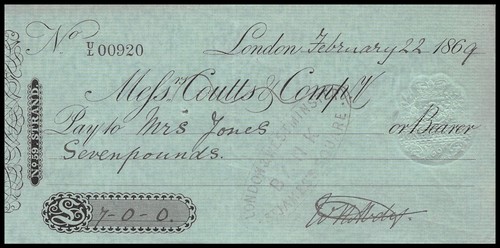 No U/L 00920 London February 22 1869
Messrs Coutts & Compy
Pay to Mrs Jones or Bearer
Sevenpounds.
No 59, STRAND.
£ 7-0-0.
LONDON & WESTMINSTER
BANK
ST JAMES'S SQUARE